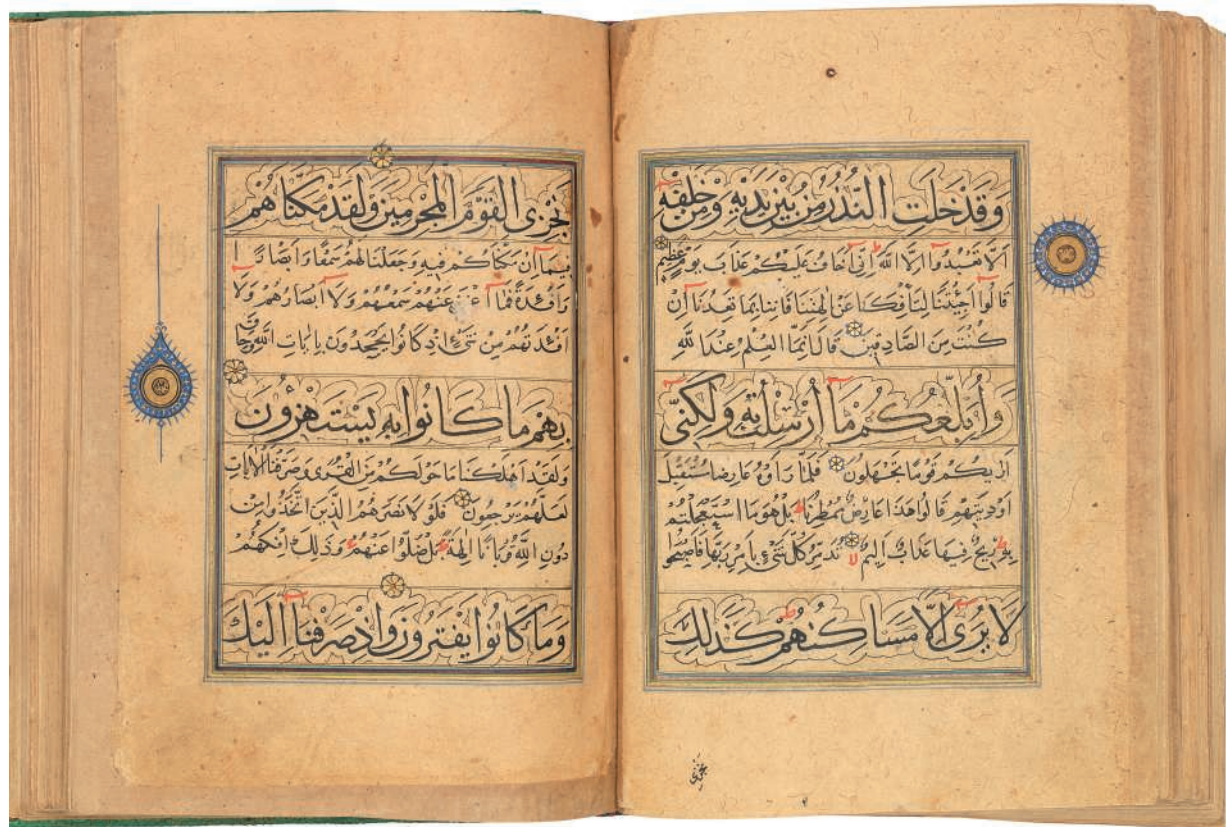 وَقَدْ خَلَتِ النُّذُرُ مِنْ بَيْنِ يَدَيْهِ وَمِنْ خَلْفِهِ
اَلَّا تَعْبُدُوا اِلَّا اللّٰهَ اِنِّي اَخَافُ عَلَيْكُمْ عَذَابَ يَوْمٍ عَظِيمٍ
قَالُوا اَجِئْتَنَا لِتَأْفِكَنَا عَنْ اٰلِهَتِنَا فَاتِنَا بِمَا تَعِدُنَا اِنْ
كُنْتَ مِنَ الصَّادِقِينَ قَالَ اِنَّمَا الْعِلْمُ عِنْدَ اللّٰهِ
وَاُبَلِّغُكُمْ مَا أُرْسِلْتُ بِهِ وَلٰكِنِّي
اَرٰيكُمْ قَوْمًا تَجْهَلُونَ فَلَمَّا رَاَوْهُ عَارِضًا مُسْتَقْبِلَ
اَوْدِيَتِهِمْ قَالُوا هٰذَا عَارِضٌ مُمْطِرُنَا بَلْ هُوَ مَا اسْتَعْجَلْتُمْ
بِهِ رِيحٌ فِيهَا عَذَابٌ اَلِيمٌ تُدَمِّرُ كُلَّ شَيْءٍ بِاَمْرِ رَبِّهَا فَاَصْبَحُوا
لَا يُرٰى اِلَّا مَسَاكِنُهُمْ كَذٰلِكَ
نَجْزِي الْقَوْمَ الْمُجْرِمِينَ وَلَقَدْ مَكَّنَّاهُمْ
فِيمَا اِنْ مَكَّنَّاكُمْ فِيهِ وَجَعَلْنَا لَهُمْ سَمْعًا وَاَبْصَارًا
وَاَفْئِدَةً فَمَا اَغْنٰى عَنْهُمْ سَمْعُهُمْ وَلَا اَبْصَارُهُمْ وَلَا
اَفْئِدَتُهُمْ مِنْ شَيْءٍ اِذْ كَانُوا يَجْحَدُونَ بِاٰيَاتِ اللّٰهِ وَحَاقَ
بِهِمْ مَا كَانُوا بِهِ يَسْتَهْزِؤُنَ
وَلَقَدْ اَهْلَكْنَا مَا حَوْلَكُمْ مِنَ الْقُرٰى وَصَرَّفْنَا الْاٰيَاتِ
لَعَلَّهُمْ يَرْجِعُونَ فَلَوْلَا نَصَرَهُمُ الَّذِينَ اتَّخَذُوا مِنْ
دُونِ اللّٰهِ قُرْبَانًا اٰلِهَةً بَلْ ضَلُّوا عَنْهُمْ وَذٰلِكَ اِفْكُهُمْ
وَمَا كَانُوا يَفْتَرُونَ وَاِذْ صَرَفْنَا اِلَيْكَ